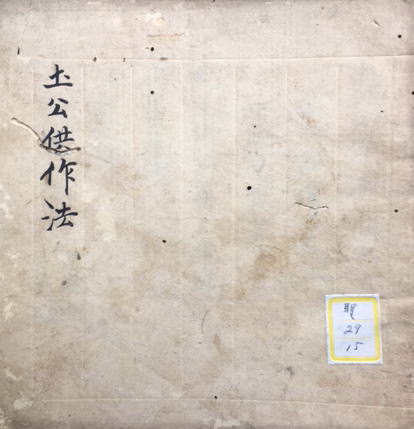 土公供作法
聖
29
15